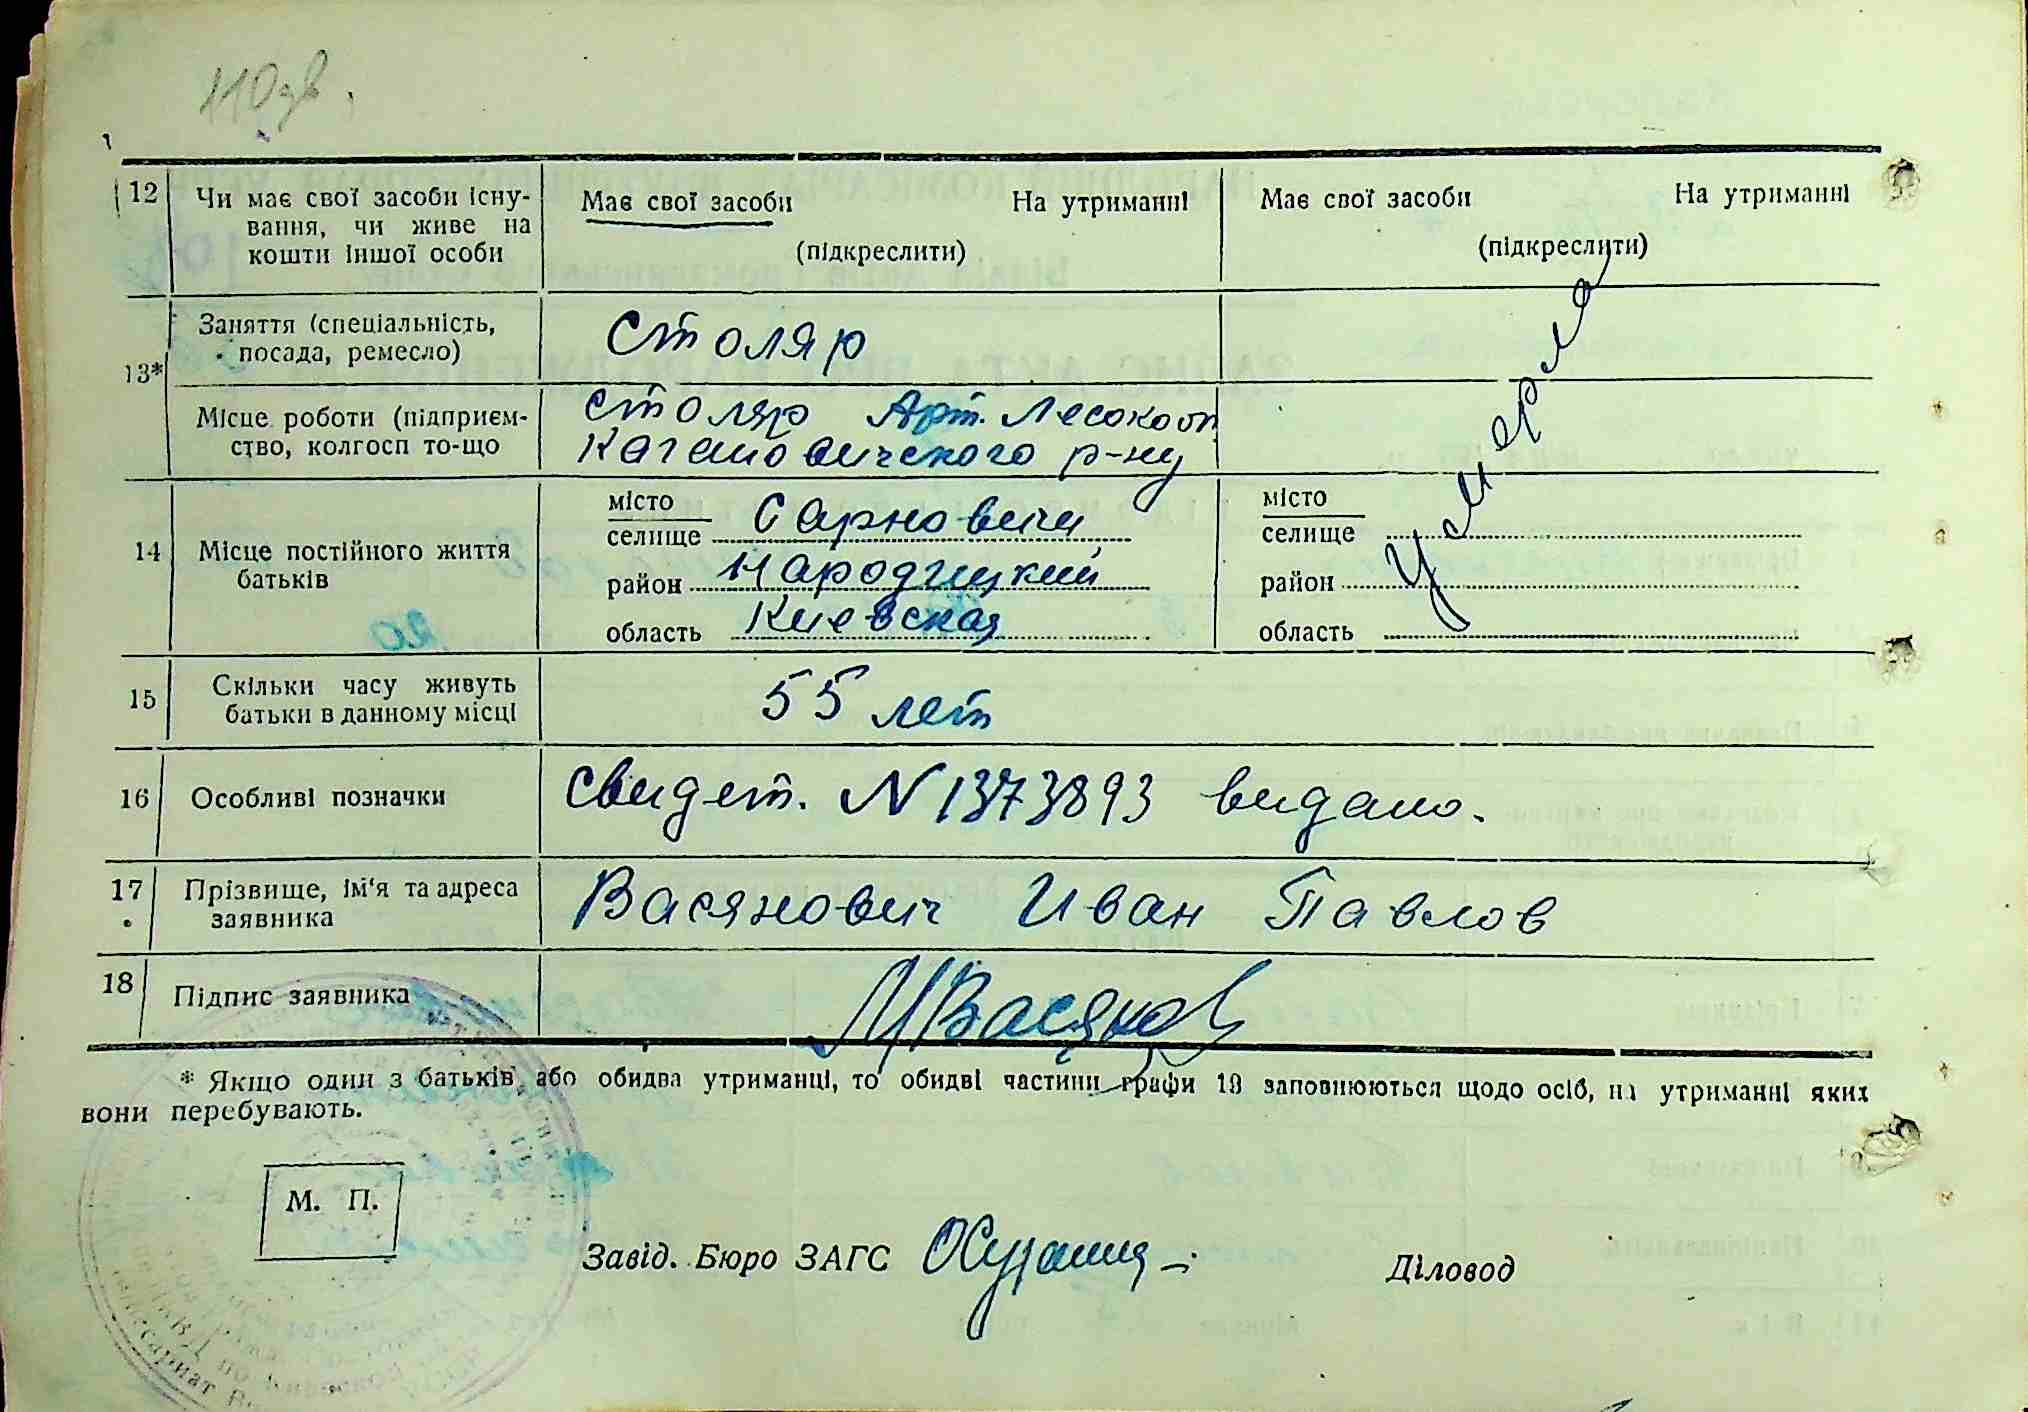 110 зв.
12 Чи має свої засоби існу- Має свої засоби На утриманні Має свої засоби На утриманні
вання, чи живе на (підкреслити) (підкреслити)
кошти іншої особи
13* Заняття (спеціальність, Столяр
посада, ремесло)
Місце роботи (підприєм- Столяр Арт. Лесокоп
ство, колгосп то-що Кагановичского р-ну
Умерла
14 Місце постійного життя батьків
місто
селище Сарновичи
район Народицкий
область Киевская
місто
селище
район
область
15 Скільки часу живуть 55 лет
батьки в данному місці
16 Особливі позначки Свидет. N 1373893 видано.
17 Прізвище, ім'я та адреса Васянович Иван Павлов
заявника
18 Підпис заявника
* Якщо один з батьків або обидва утриманці, то обидві частини графи 13 заповнюються щодо осіб, на утриманні яких
вони перебувають.
М. П.
Завід. Бюро ЗАГС Діловод